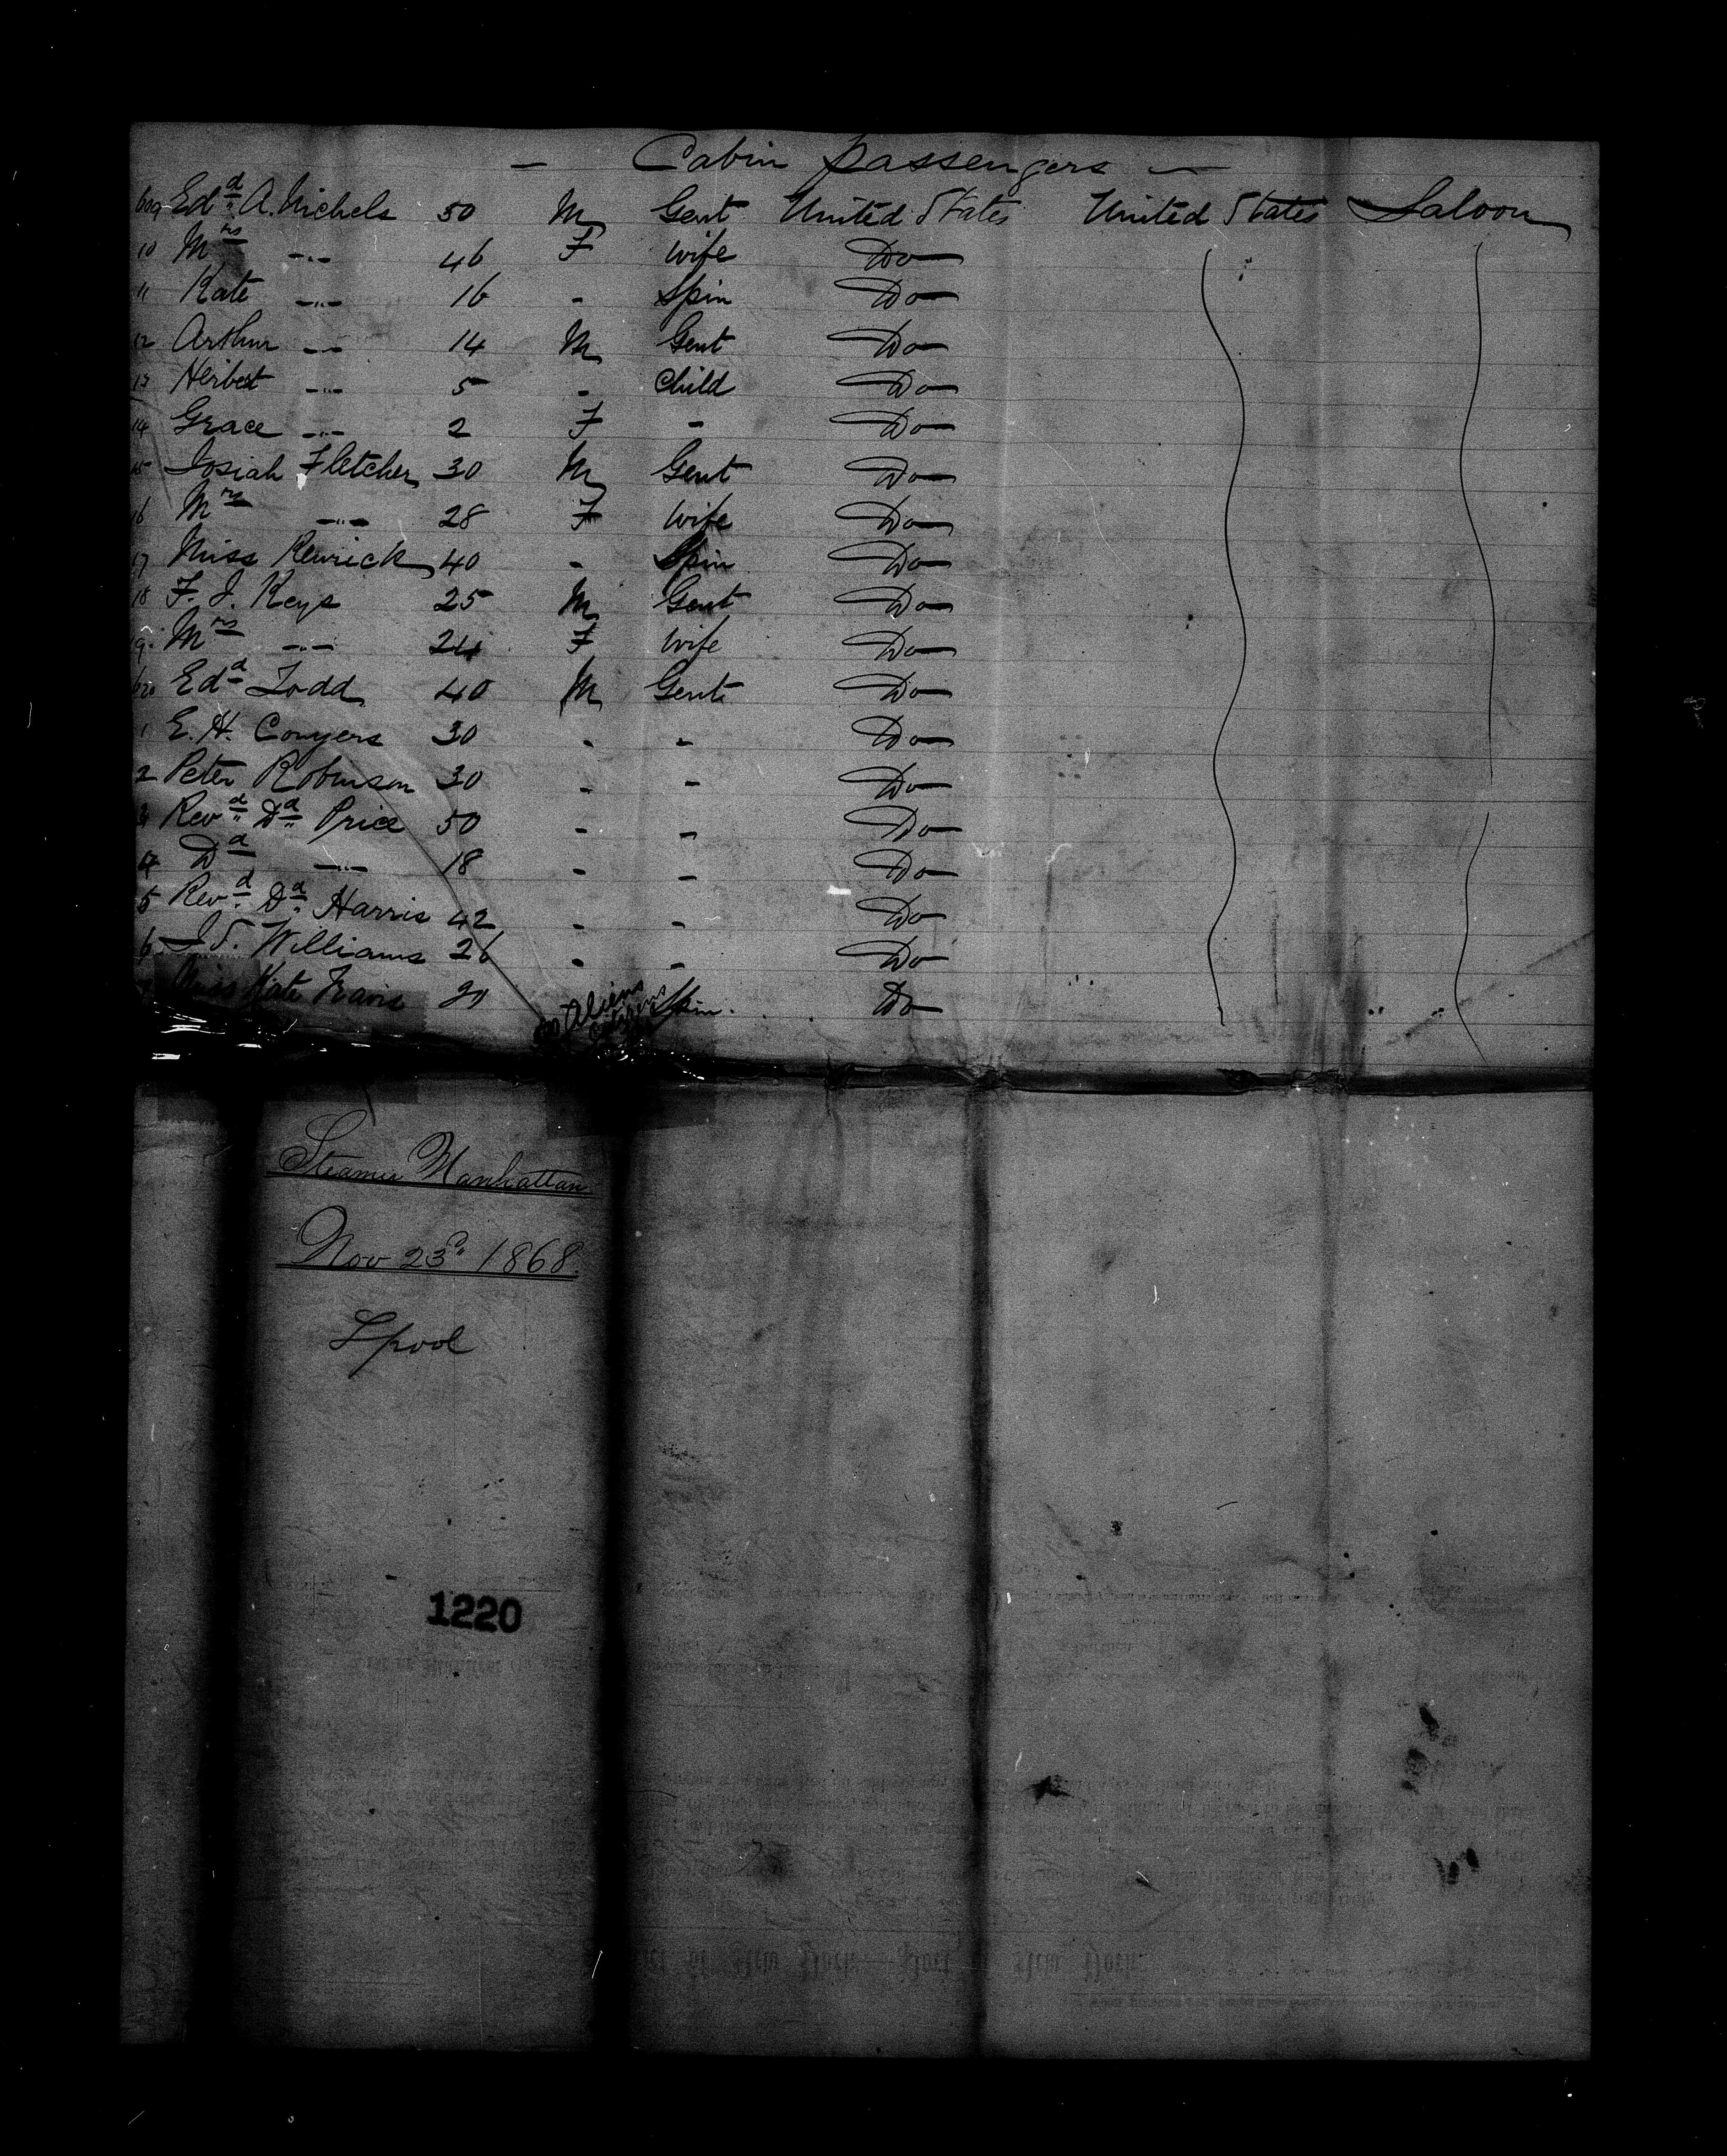 - Cabin passengers -
609 Edd A. Nichols 50 M Gent United States United States Saloon
10 Mrs -"- 46 F Wife Do
11 Kate -"- 16 - Spin Do
12 Arthur -"- 14 M Gent Do
13 Herbert -"- 5 - Child Do
14 Grace -"- 2 F - Do
15 Josiah Fletcher 30 M Gent Do
16 Mrs -"- 28 F Wife Do
17 Miss Renrick 40 - Spin Do
18 F. J. Keys 25 M Gent Do
19 Mrs -"- 24 F Wife Do
620 Edd Todd 40 M Gent Do
1 E. H. Conyers 30 - - Do
2 Peter Robinson 30 - - Do
3 Revd Dd Price 50 - - Do
4 Dd -"- 18 - - Do
5 Revd Dd Harris 42 - - Do
6 J S. Williams 26 - - Do
7 Miss Kate Travis 20 Spin. Do
Aliens
Steamer Manhattan
Nov 23d 1868.
Lpool
1220